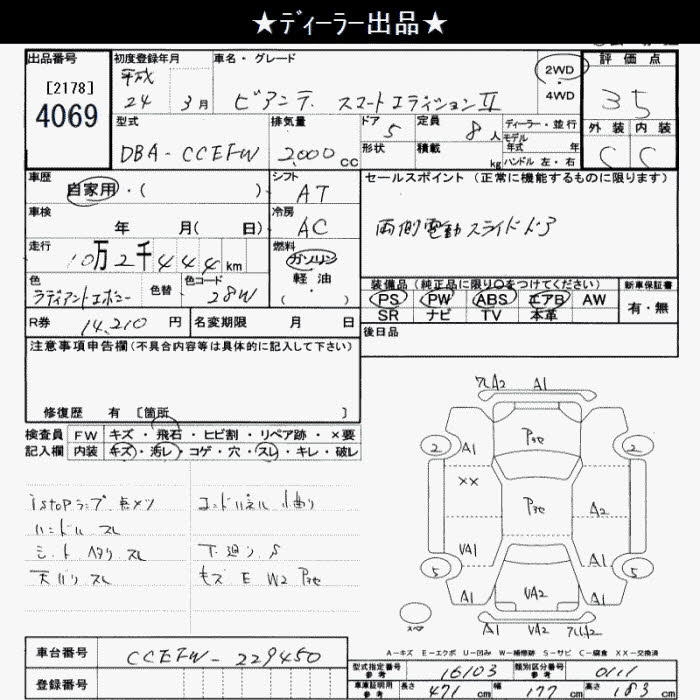 ★ディーラー出品★
出品番号
[2178]
4069
初度登録年月
平成
24 3月
車名・グレード
ビアンテ スマートエディションⅡ
2WD
・
4WD
評価点
3.5
外装 内装
C C
型式
DBA-CCEFW
排気量
2,000 cc
ドア 5
形状
定員 8 人
積載 kg
ディーラー・並行
モデル
年式 年
ハンドル 左・右
車歴
自家用・( )
シフト
AT
車検
年 月( 日)
冷房
AC
走行
10万2千444km
燃料
ガソリン
軽油
( ・ )
色
ラディアントエボニー
色替
色コード
28W
セールスポイント (正常に機能するものに限ります)
両側電動スライドドア
装備品 (純正品に限り○をつけてください)
新車保証書
PS PW ABS エアB AW
SR ナビ TV 本革
有・無
R券 14,210 円
名変期限 月 日
後日品
注意事項申告欄(不具合内容等は具体的に記入して下さい)
修復歴 有 [箇所 ]
検査員
記入欄
FW キズ・飛石・ヒビ割・リペア跡・×要
内装 キズ・汚レ・コゲ・穴・スレ・キレ・破レ
istopランプ 点メツ
ハンドル スレ
シート ヘタリ スレ
天バリ スレ
コアパネル 曲り
下廻り S
キズ E W2 Pヌケ
A2 A1
2 A1
××
VA1
5 A1
A2
2
A1
5
A1
VA2
A1 VA2 A2
スペア
A-キズ E-エクボ U-凹み W-補修跡 S-サビ C-腐食 XX-交換済
車台番号
CCEFW-229450
登録番号
型式指定番号
参考
16103
類別区分番号
参考
0111
車庫証明用
参考
長さ 471 cm 幅 177 cm 高さ 183 cm